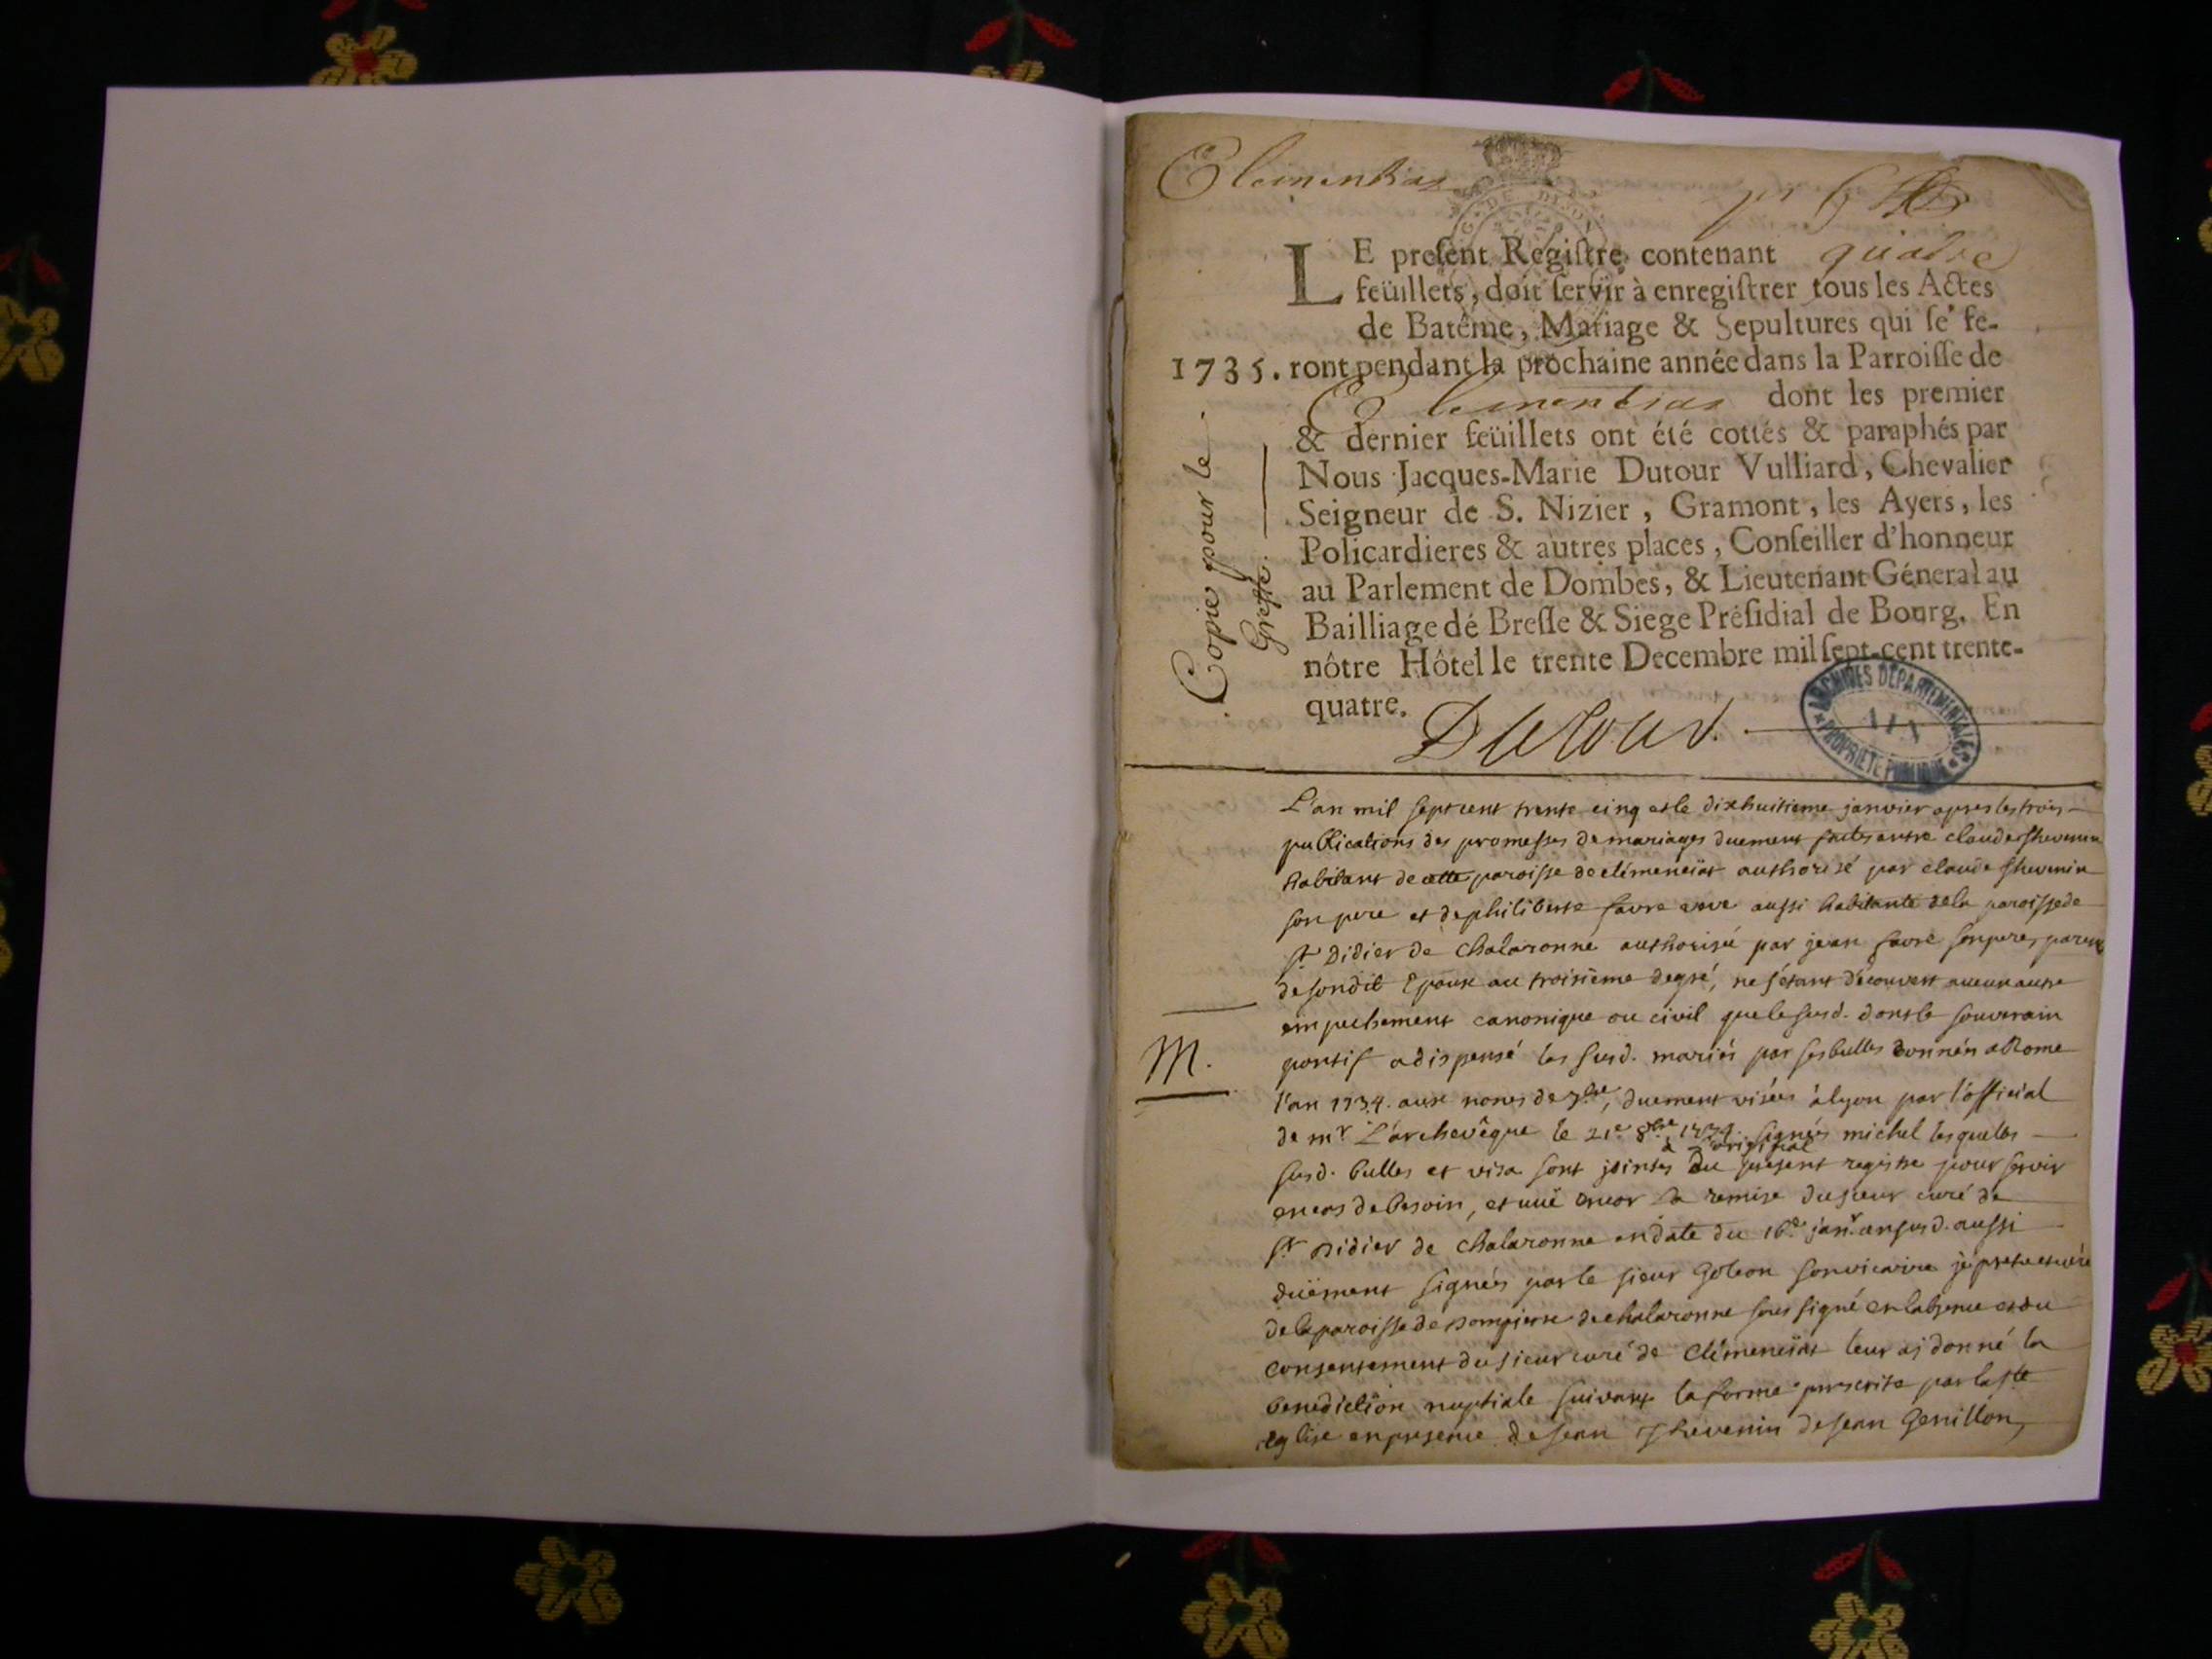 Clementias
DE DIJON
LE preſent Regiſtre contenant quatre
feüillets, doit ſervir à enregiſtrer tous les Actes
de Batême, Mariage & Sepultures qui ſe fe-
1735. ront pendant la prochaine année dans la Parroiſſe de
Clementias dont les premier
& dernier feüillets ont été cottés & paraphés par
Nous Jacques-Marie Dutour Vulliard, Chevalier
Seigneur de S. Nizier, Gramont, les Ayers, les
Policardieres & autres places, Conſeiller d'honneur
au Parlement de Dombes, & Lieutenant Géneral au
Bailliage de Breſſe & Siege Préſidial de Bourg. En
nôtre Hôtel le trente Decembre mil ſept-cent trente-
quatre.
Copie pour le
Greffe.
Dutour.
ARCHIVES DÉPARTEMENTALES
PROPRIÉTÉ PUBLIQUE
L'an mil sept cent trente cinq et le dixhuitieme janvier apres les trois
publications des promesses de mariages duement faites entre claude thevenin
habitant de cette paroisse de clémenciat authorisé par claude thevenin
son pere et de philiberte favre aussi habitante de la paroisse de
st Didier de chalaronne authorisée par jean favre son pere, parente
de sondit Epoux au troisième degré, ne s'étant découvert aucun autre
empechement canonique ou civil que le susd. dont le souverain
M.
pontif a dispensé les susd. mariés par ses bulles données a Rome
l'an 1734. aux nones de 7bre, duement visées à lyon par l'official
de mr L'archevêque le 21e 8bre 1734. signées michel lesquelles
susd. bulles et visa sont jointes à l'original du present registre pour servir
en cas de besoin, et vuë encor la remise du sieur curé de
st Didier de chalaronne en date du 16e janr. an susd. aussi
düement signées par le sieur Gobon son vicaire je pretre
de la paroisse de dompierre de chalaronne sous signé en l'absence et du
consentement du sieur curé de Clémenciat leur aj donné la
benediction nuptiale suivant la forme prescrite par la ste
eglise en presence de jean Thevenin de jean Genillon,